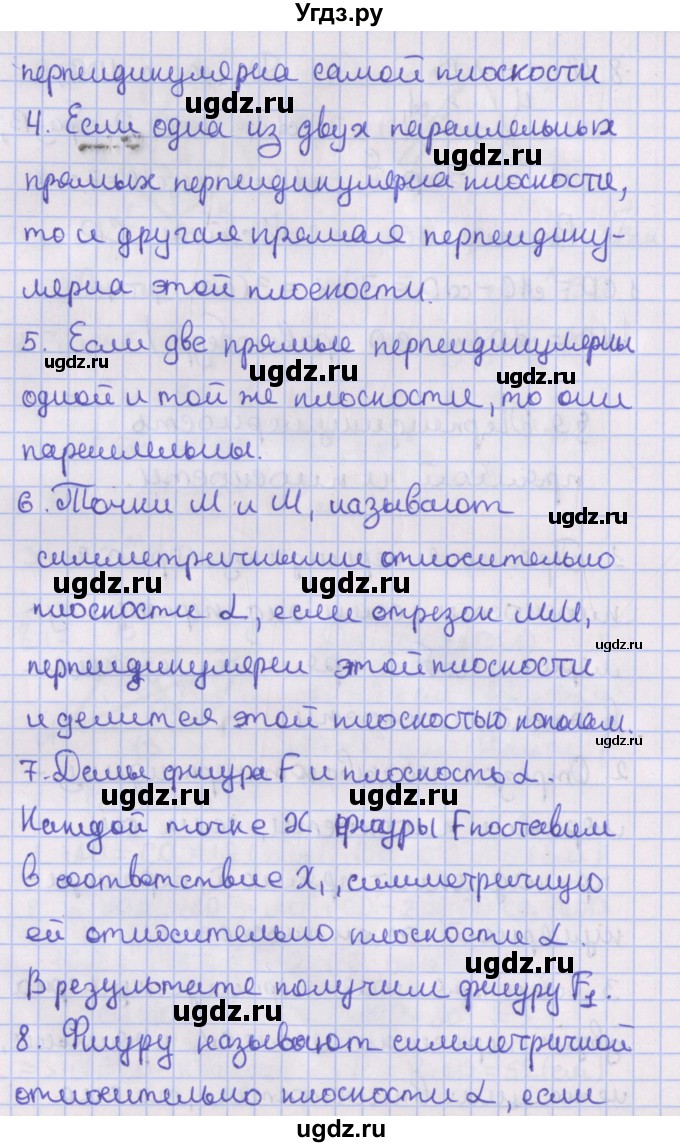 Угдз.ру
перпендикулярна самой плоскости
ugdz.ru
4. Если одна из двух параллельных
ugdz.ru
прямых перпендикулярна плоскости,
то и другая прямая перпендику-
лярна этой плоскости.
5. Если две прямые перпендикулярны
ugdz.ru ugdz.ru ugdz.ru
одной и той же плоскости, то они
параллельны.
6. Точки M и M₁ называют
ugdz.ru
симметричными относительно
ugdz.ru ugdz.ru
плоскости α, если отрезок MM₁
ugdz.ru
перпендикулярен этой плоскости
и делится этой плоскостью пополам.
ugdz.ru
7. Даны фигура F и плоскость α.
ugdz.ru ugdz.ru
Каждой точке X фигуры F поставим
в соответствие X₁, симметричную
ей относительно плоскости α.
ugdz.ru
В результате получим фигуру F₁.
8. Фигуру называют симметричной
относительно плоскости α, если
ugdz.ru